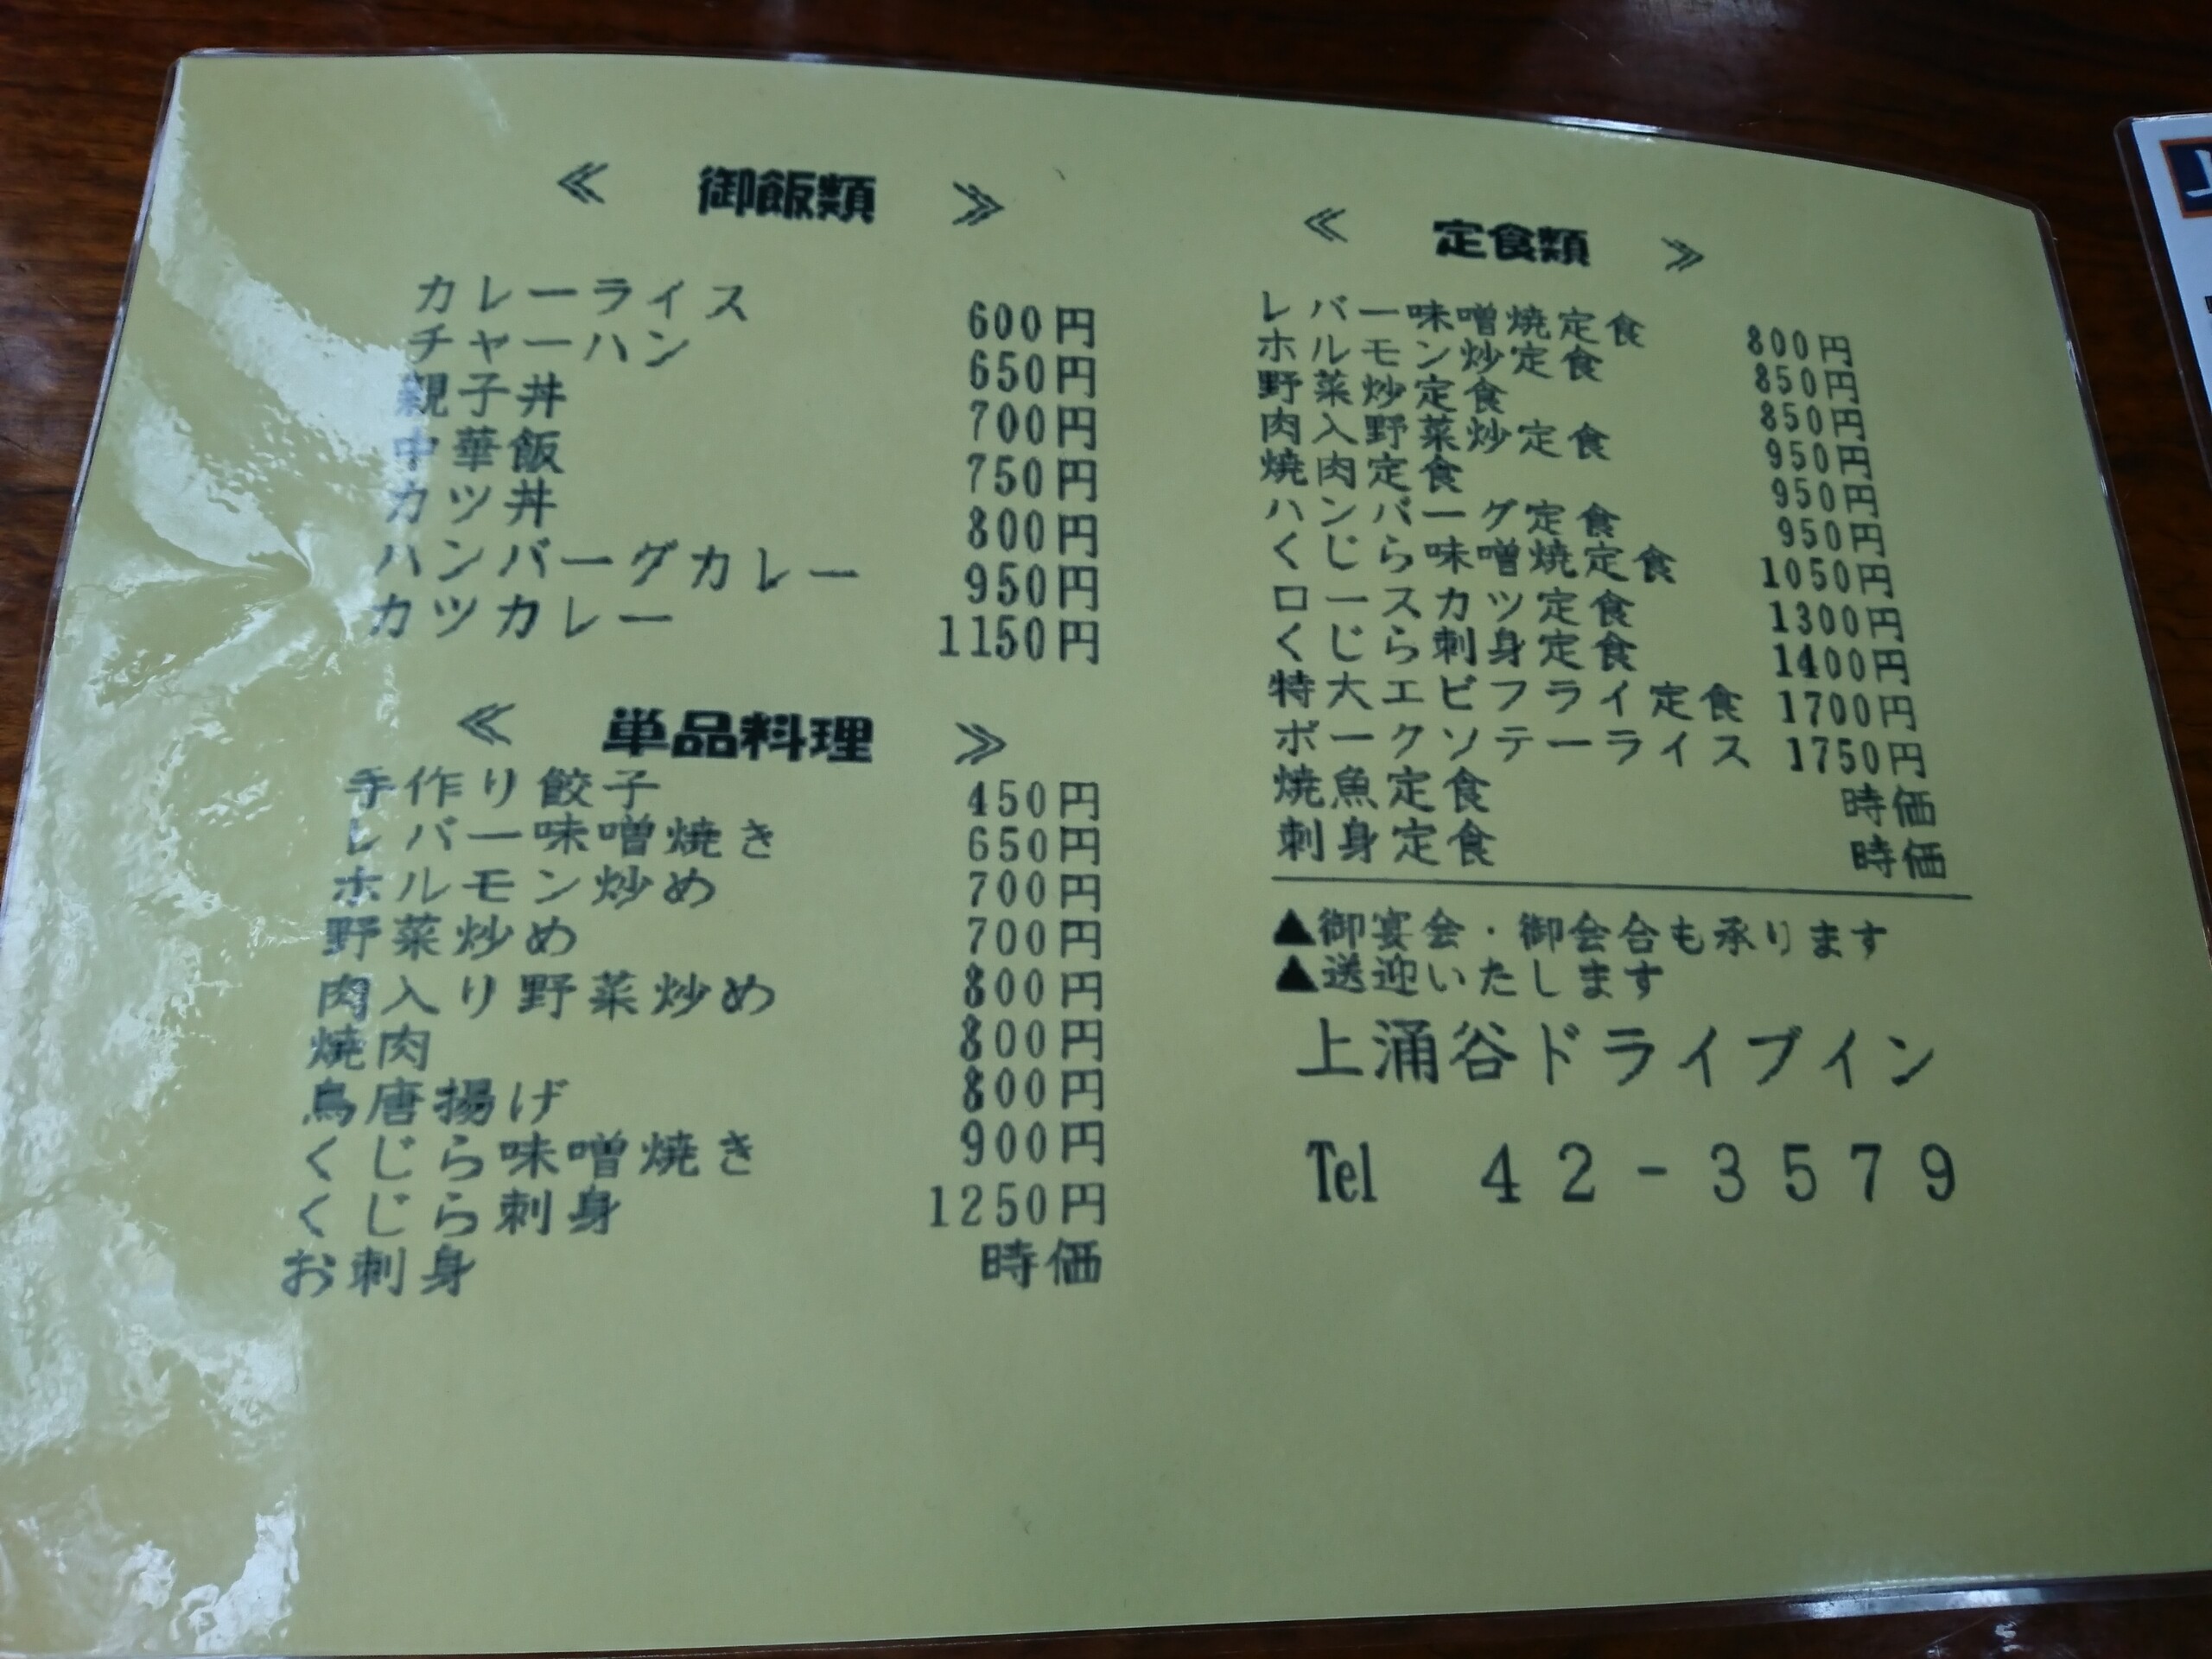 ≪ 御飯類 ≫
カレーライス 600円
チャーハン 650円
親子丼 700円
中華飯 750円
カツ丼 800円
ハンバーグカレー 950円
カツカレー 1150円
≪ 単品料理 ≫
手作り餃子 450円
レバー味噌焼き 650円
ホルモン炒め 700円
野菜炒め 700円
肉入り野菜炒め 800円
焼肉 800円
鳥唐揚げ 800円
くじら味噌焼き 900円
くじら刺身 1250円
お刺身 時価
≪ 定食類 ≫
レバー味噌焼定食 800円
ホルモン炒定食 850円
野菜炒定食 850円
肉入野菜炒定食 950円
焼肉定食 950円
ハンバーグ定食 950円
くじら味噌焼定食 1050円
ロースカツ定食 1300円
くじら刺身定食 1400円
特大エビフライ定食 1700円
ポークソテーライス 1750円
焼魚定食 時価
刺身定食 時価
▲御宴会・御会合も承ります
▲送迎いたします
上涌谷ドライブイン
Tel 42-3579